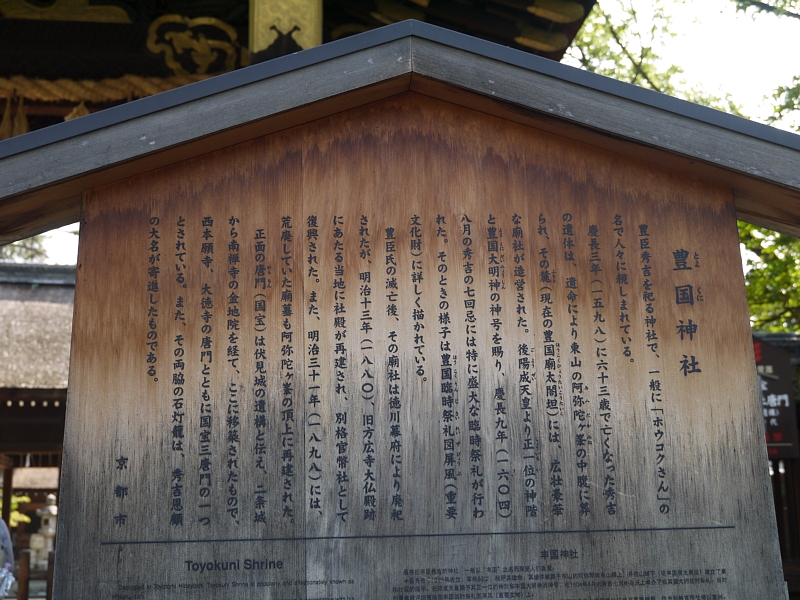 豊国神社
とよくに
豊臣秀吉を祀る神社で、一般に「ホウコクさん」の
名で人々に親しまれている。
慶長三年(一五九八)に六十三歳で亡くなった秀吉
の遺体は、遺命により東山の阿弥陀ヶ峯の中腹に葬
られ、その麓(現在の豊国廟太閤坦)には、広壮豪華
な廟社が造営された。後陽成天皇より正一位の神階
と豊国大明神の神号を賜り、慶長九年(一六〇四)
八月の秀吉の七回忌には特に盛大な臨時祭礼が行わ
れた。そのときの様子は豊国臨時祭礼図屏風(重要
文化財)に詳しく描かれている。
豊臣氏の滅亡後、その廟社は徳川幕府により廃祀
されたが、明治十三年(一八八〇)、旧方広寺大仏殿跡
にあたる当地に社殿が再建され、別格官幣社として
復興された。また、明治三十一年(一八九八)には、
荒廃していた廟墓も阿弥陀ヶ峯の頂上に再建された。
正面の唐門(国宝)は伏見城の遺構と伝え、二条城
から南禅寺の金地院を経て、ここに移築されたもので、
西本願寺、大徳寺の唐門とともに国宝三唐門の一つ
とされている。また、その両脇の石灯籠は、秀吉恩顧
の大名が寄進したものである。
京都市
Toyokuni Shrine
Dedicated to Toyotomi Hideyoshi, Toyokuni Shrine is popularly and affectionately known as
丰国神社